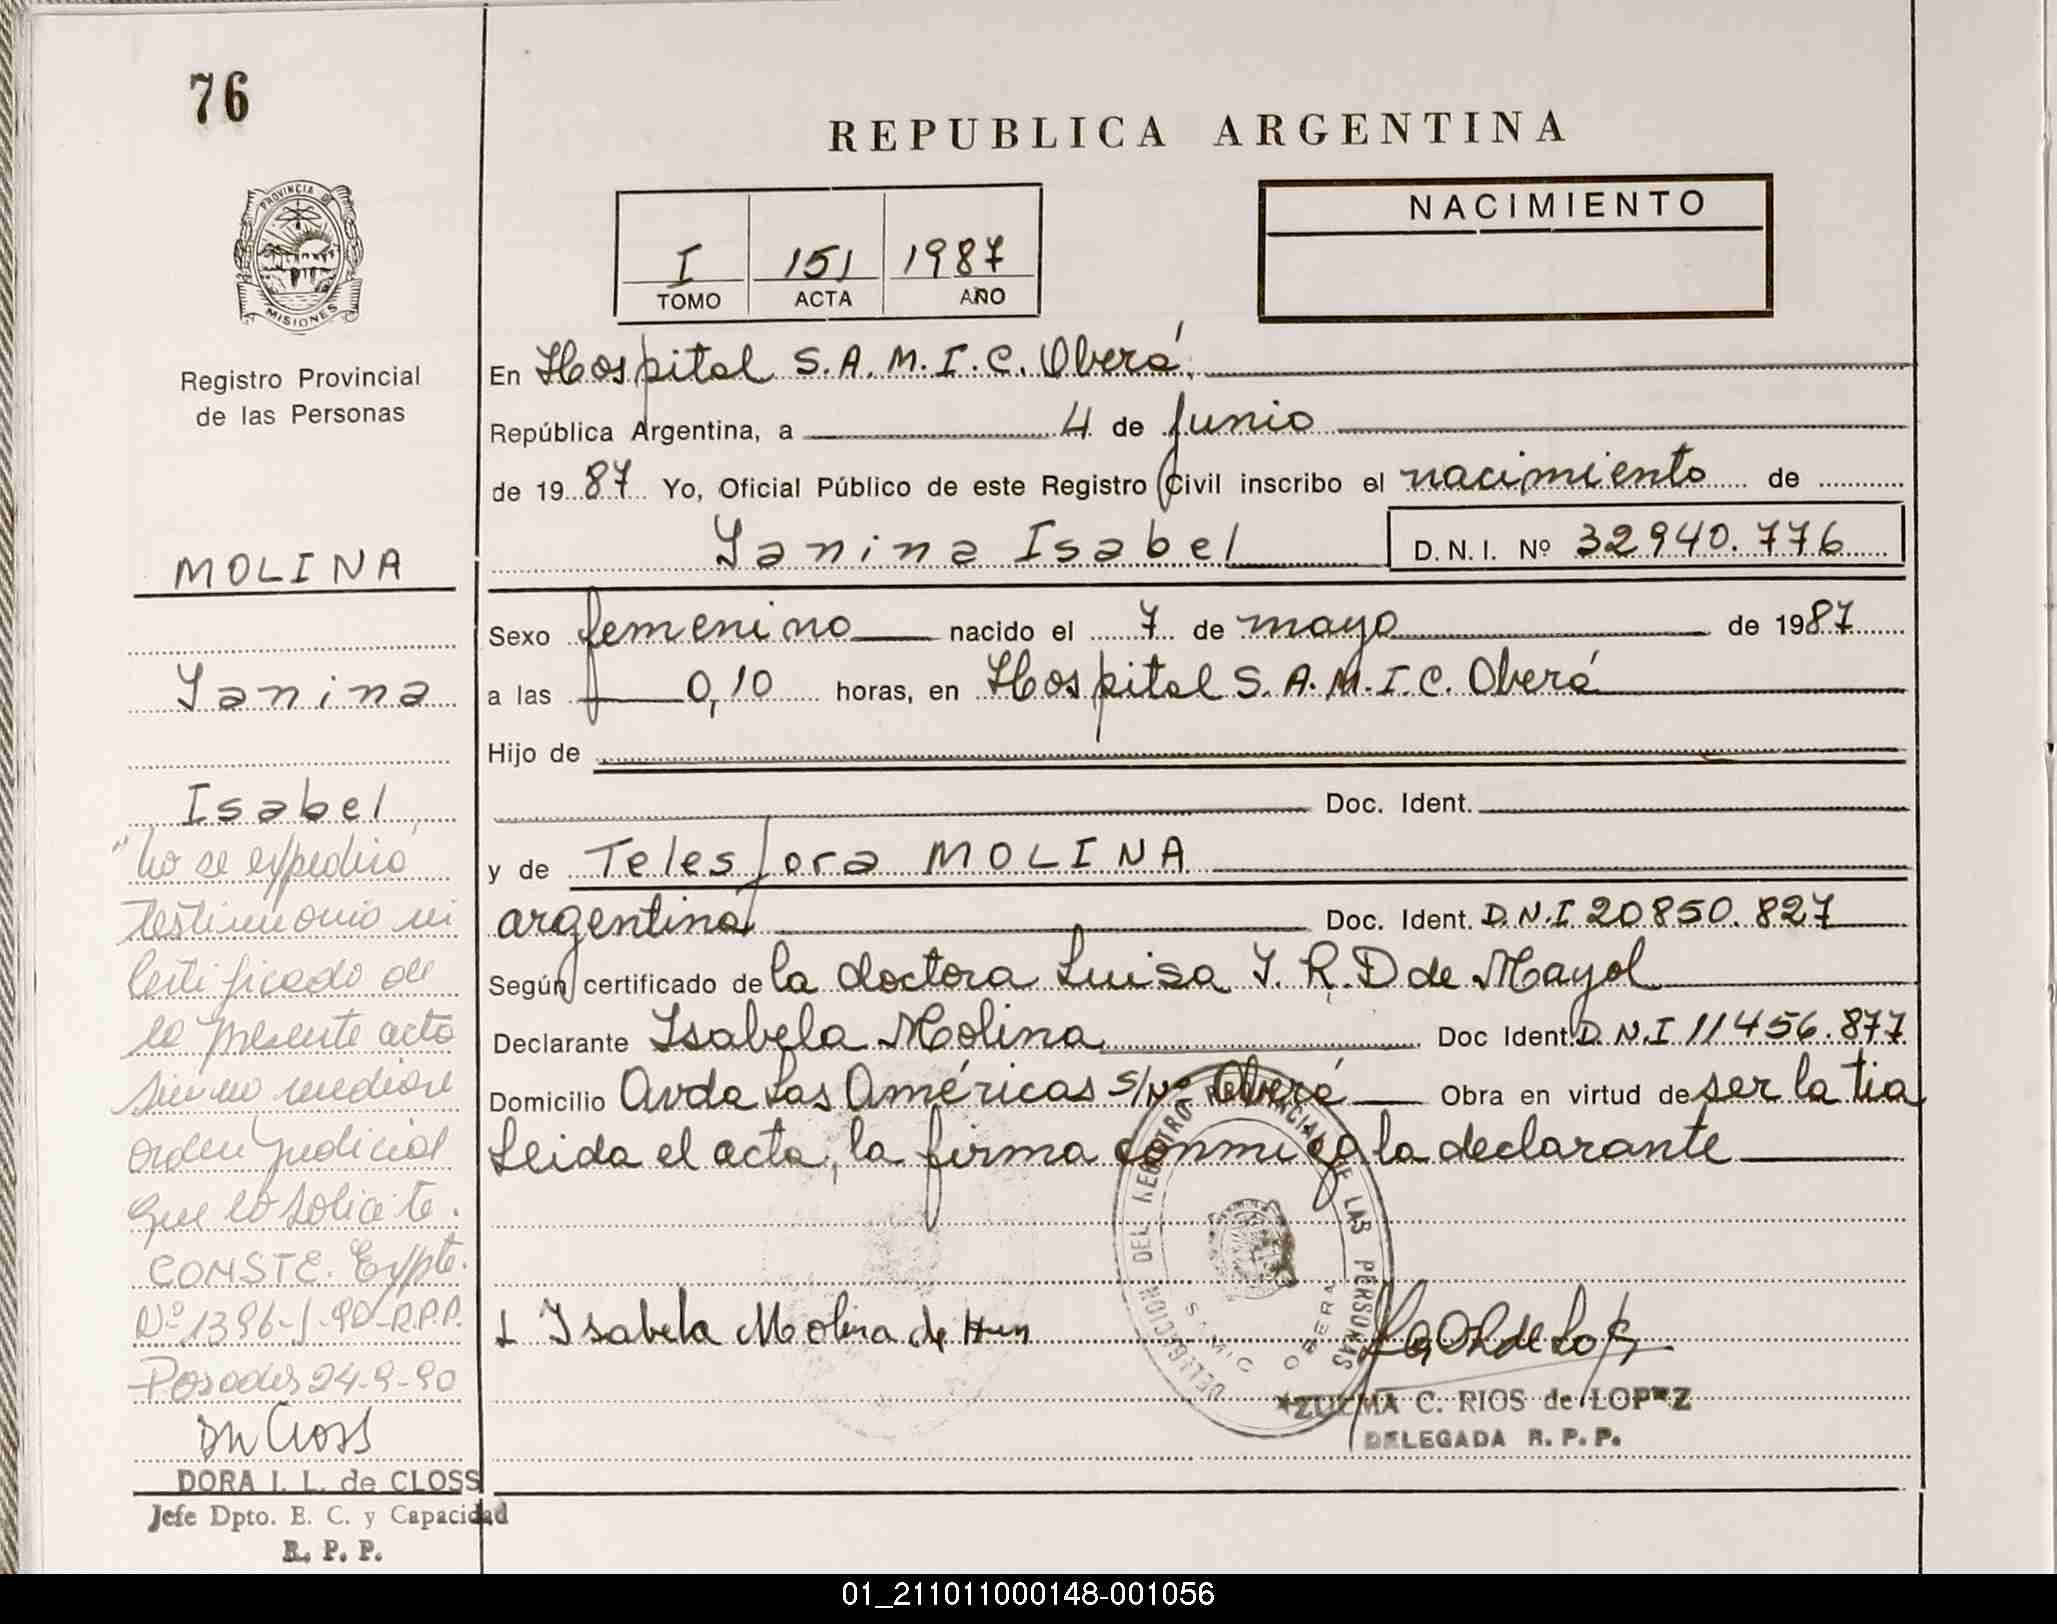 76
REPUBLICA ARGENTINA
PROVINCIA DE
MISIONES
Registro Provincial
de las Personas
I 151 1987
TOMO ACTA AÑO
NACIMIENTO
En Hospital S.A.M.I.C. Oberá
República Argentina, a 4 de Junio
de 1987 Yo, Oficial Público de este Registro Civil inscribo el nacimiento de
Yanina Isabel D.N.I. Nº 32940.776
Sexo femenino nacido el 7 de mayo de 1987
a las 0,10 horas, en Hospital S.A.M.I.C. Oberá
Hijo de
Doc. Ident.
y de Telesfora MOLINA
argentina Doc. Ident. D.N.I 20850.827
Según certificado de la doctora Luisa Y. R. D de Mayol
Declarante Isabela Molina Doc Ident. D.N.I 11456.877
Domicilio Avda Las Américas s/Nº Oberá Obra en virtud de ser la tia
Leida el acta, la firma conmigo la declarante
Isabela Molina de
DELEGACION DEL REGISTRO PROVINCIAL DE LAS PERSONAS
S.A.M.I.C OBERA
ZULMA C. RIOS de LOPEZ
DELEGADA R. P. P.
MOLINA
Yanina
Isabel
"No se expedirá
testimonio ni
certificado de
la presente acta
si no mediare
orden judicial
que lo solicite.
CONSTE. Expte.
Nº 1396-J-90-R.P.P.
Posadas 24-9-90
DORA I. L. de CLOSS
Jefe Dpto. E. C. y Capacidad
R. P. P.
01_211011000148-001056